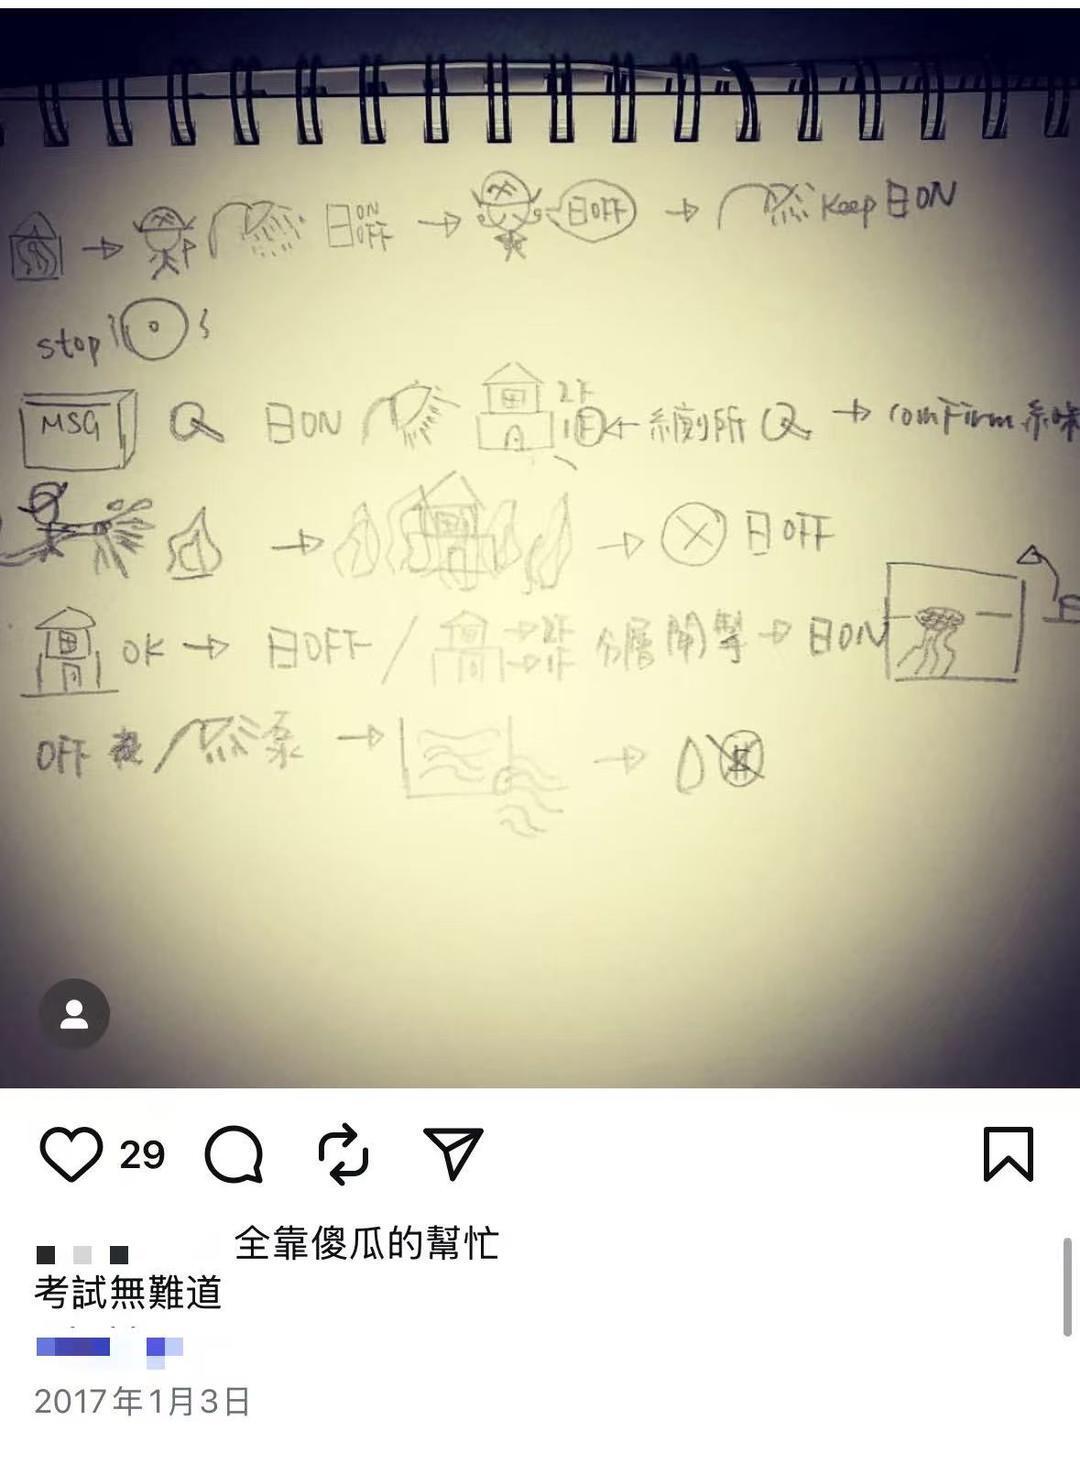 日 ON OFF 日OFF Keep 日ON
stop
MSG 日ON 2F 1F 廁所 confirm
日OFF
OK 日OFF / 2F 1F 分層開掣 日ON
OFF 泵
29
全靠傻瓜的幫忙
考試無難道
2017年1月3日